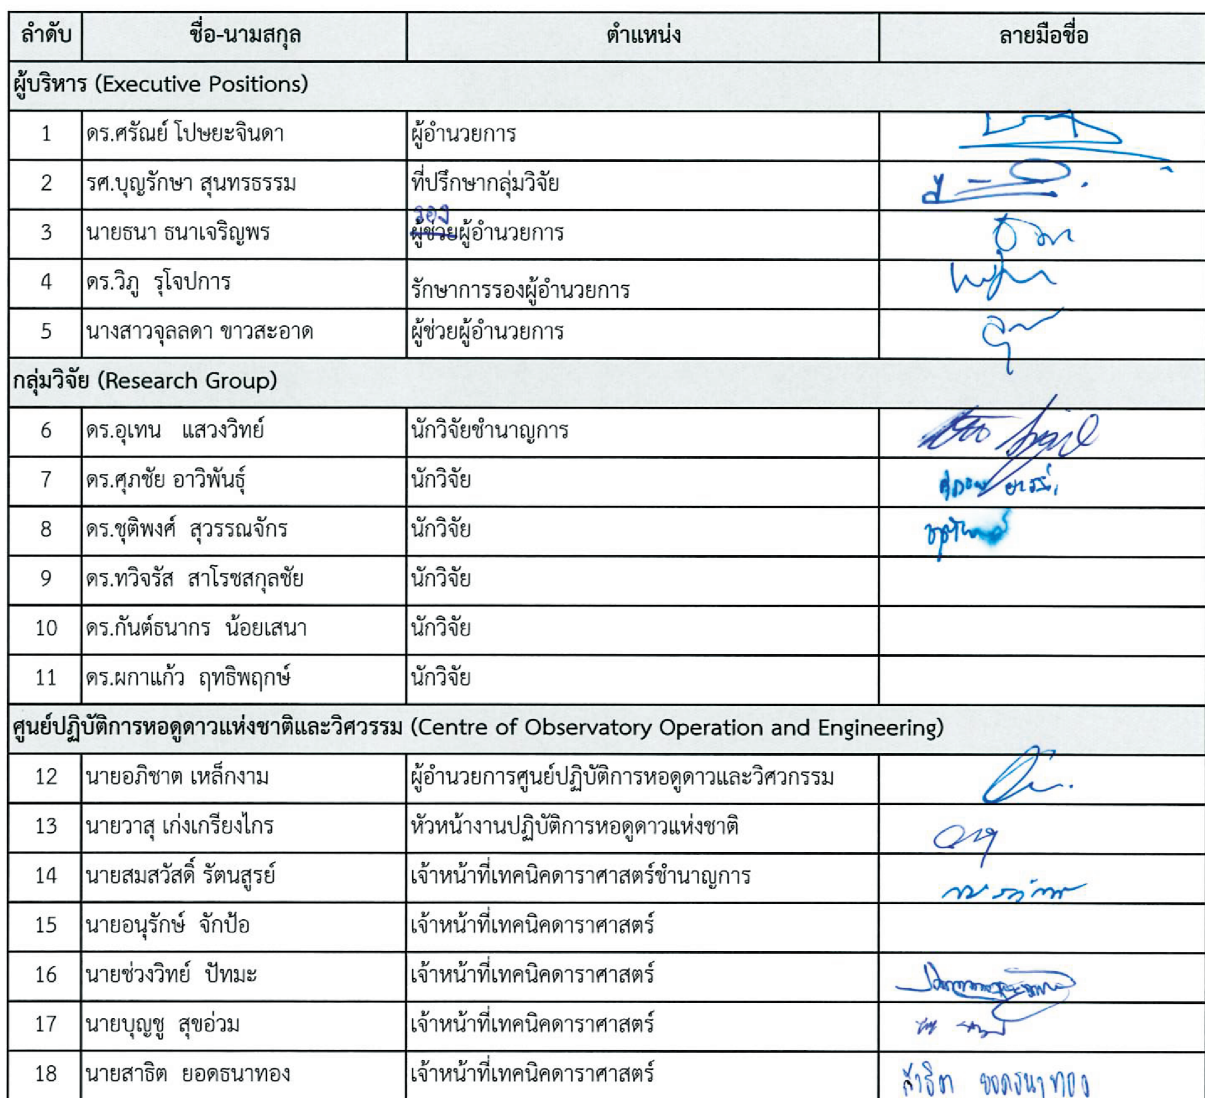 ลำดับ ชื่อ-นามสกุล ตำแหน่ง ลายมือชื่อ
ผู้บริหาร (Executive Positions)
1 ดร.ศรัณย์ โปษยะจินดา ผู้อำนวยการ
2 รศ.บุญรักษา สุนทรธรรม ที่ปรึกษากลุ่มวิจัย
รอง
3 นายธนา ธนาเจริญพร ผู้ช่วยผู้อำนวยการ
4 ดร.วิภู รุโจปการ รักษาการรองผู้อำนวยการ
5 นางสาวจุลลดา ขาวสะอาด ผู้ช่วยผู้อำนวยการ
กลุ่มวิจัย (Research Group)
6 ดร.อุเทน แสวงวิทย์ นักวิจัยชำนาญการ
7 ดร.ศุภชัย อาวิพันธุ์ นักวิจัย
8 ดร.ชุติพงศ์ สุวรรณจักร นักวิจัย
9 ดร.ทวิจรัส สาโรชสกุลชัย นักวิจัย
10 ดร.กันต์ธนากร น้อยเสนา นักวิจัย
11 ดร.ผกาแก้ว ฤทธิพฤกษ์ นักวิจัย
ศูนย์ปฏิบัติการหอดูดาวแห่งชาติและวิศวรรม (Centre of Observatory Operation and Engineering)
12 นายอภิชาต เหล็กงาม ผู้อำนวยการศูนย์ปฏิบัติการหอดูดาวและวิศวกรรม
13 นายวาสุ เก่งเกรียงไกร หัวหน้างานปฏิบัติการหอดูดาวแห่งชาติ
14 นายสมสวัสดิ์ รัตนสูรย์ เจ้าหน้าที่เทคนิคดาราศาสตร์ชำนาญการ
15 นายอนุรักษ์ จักป้อ เจ้าหน้าที่เทคนิคดาราศาสตร์
16 นายช่วงวิทย์ ปัทมะ เจ้าหน้าที่เทคนิคดาราศาสตร์
17 นายบุญชู สุขอ่วม เจ้าหน้าที่เทคนิคดาราศาสตร์
18 นายสาธิต ยอดธนาทอง เจ้าหน้าที่เทคนิคดาราศาสตร์ สาธิต ยอดธนาทอง